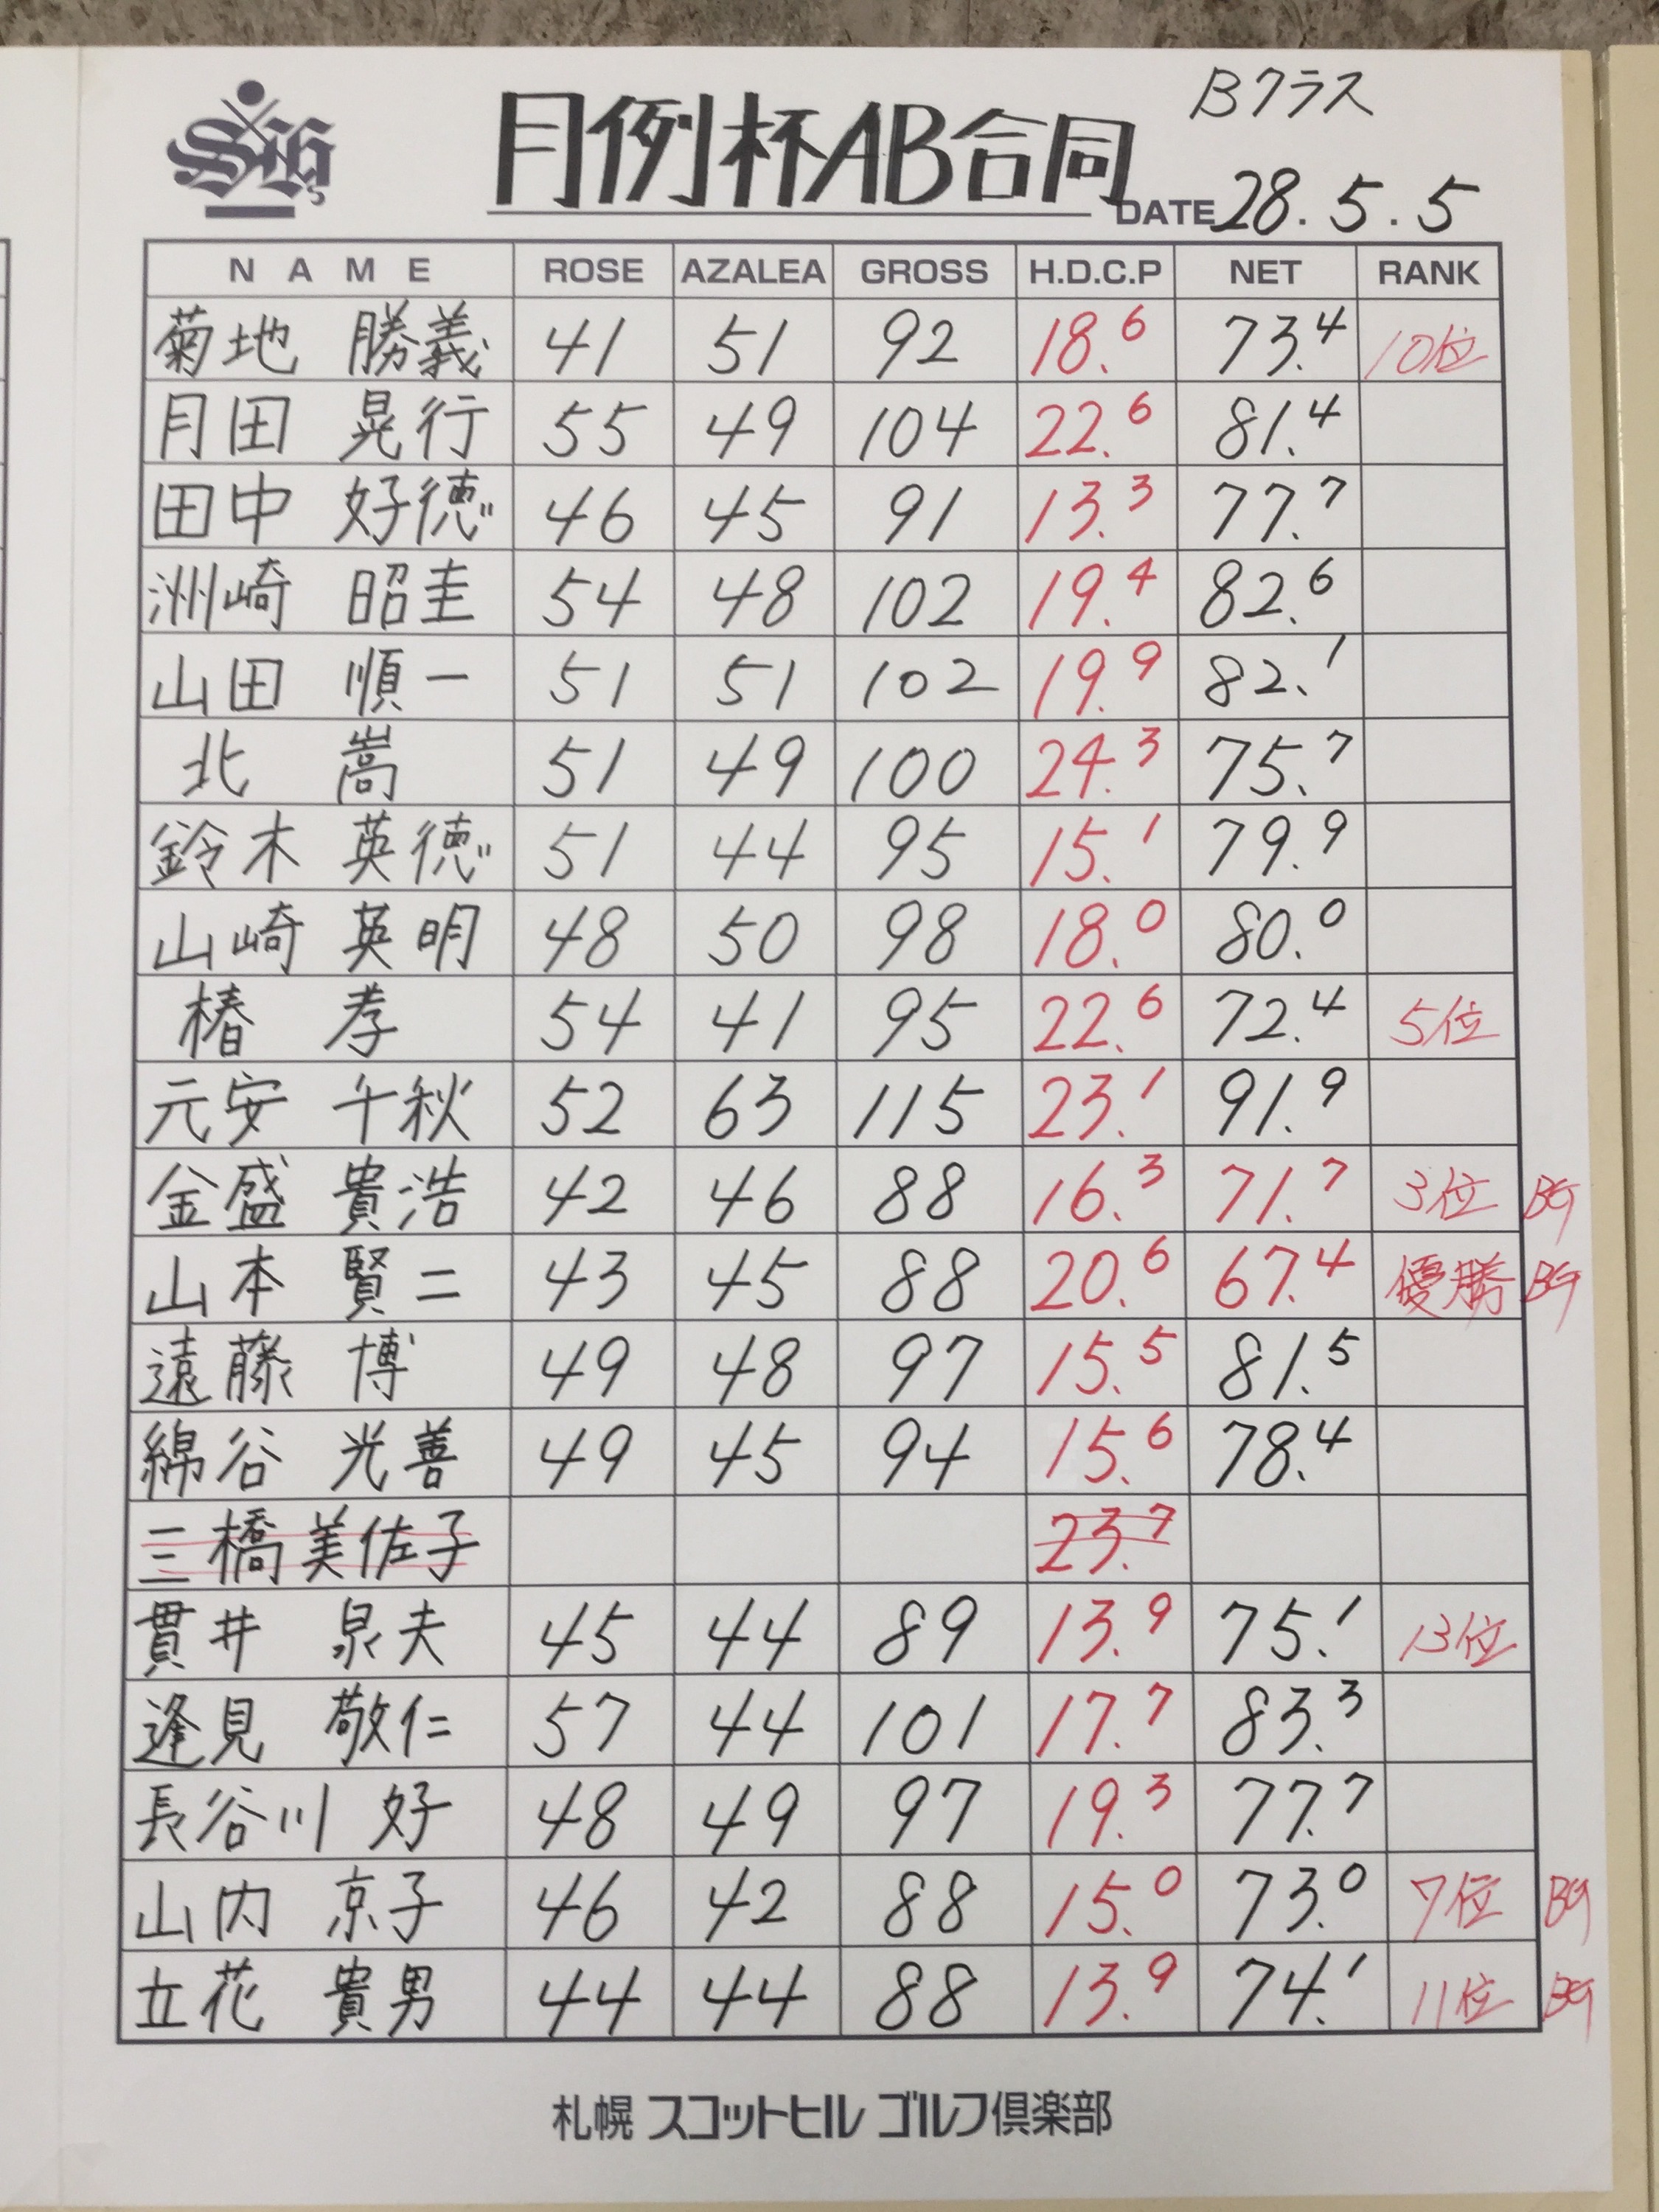 Bクラス
月例杯AB合同
DATE 28.5.5
NAME ROSE AZALEA GROSS H.D.C.P NET RANK
菊地 勝義 41 51 92 18.6 73.4 10位
月田 晃行 55 49 104 22.6 81.4
田中 好徳 46 45 91 13.3 77.7
洲崎 昭圭 54 48 102 19.4 82.6
山田 順一 51 51 102 19.9 82.1
北 嵩 51 49 100 24.3 75.7
鈴木 英徳 51 44 95 15.1 79.9
山崎 英明 48 50 98 18.0 80.0
椿 孝 54 41 95 22.6 72.4 5位
元安 千秋 52 63 115 23.1 91.9
金盛 貴浩 42 46 88 16.3 71.7 3位 BG
山本 賢二 43 45 88 20.6 67.4 優勝 BG
遠藤 博 49 48 97 15.5 81.5
綿谷 光善 49 45 94 15.6 78.4
三橋 美佐子 23.7
貫井 泉夫 45 44 89 13.9 75.1 13位
逢見 敬仁 57 44 101 17.7 83.3
長谷川 好 48 49 97 19.3 77.7
山内 京子 46 42 88 15.0 73.0 7位 BG
立花 貴男 44 44 88 13.9 74.1 11位 BG
札幌 スコットヒル ゴルフ倶楽部